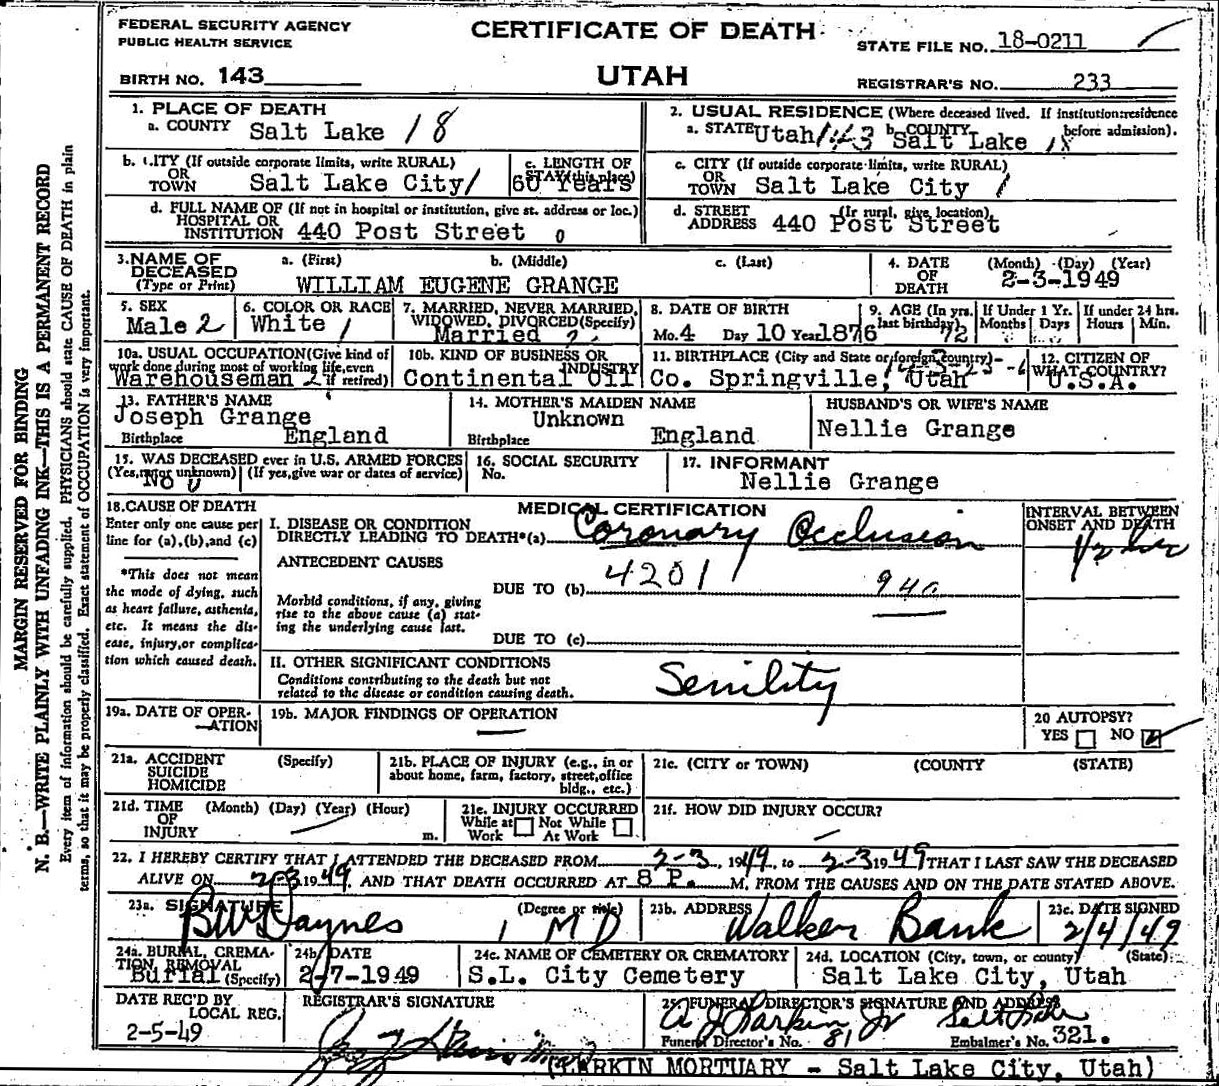 FEDERAL SECURITY AGENCY
PUBLIC HEALTH SERVICE
CERTIFICATE OF DEATH
STATE FILE NO. 18-0211
BIRTH NO. 143
UTAH
REGISTRAR'S NO. 233
MARGIN RESERVED FOR BINDING
N. B.—WRITE PLAINLY WITH UNFADING INK—THIS IS A PERMANENT RECORD
Every item of information should be carefully supplied. PHYSICIANS should state CAUSE OF DEATH in plain
terms, so that it may be properly classified. Exact statement of OCCUPATION is very important.
1. PLACE OF DEATH
a. COUNTY Salt Lake 18
2. USUAL RESIDENCE (Where deceased lived. If institution:residence
before admission).
a. STATE Utah 143 b. COUNTY Salt Lake 18
b. CITY (If outside corporate limits, write RURAL)
OR
TOWN Salt Lake City 1
c. LENGTH OF
STAY (this place)
60 Years
c. CITY (If outside corporate limits, write RURAL)
OR
TOWN Salt Lake City 1
d. FULL NAME OF (If not in hospital or institution, give st. address or loc.)
HOSPITAL OR
INSTITUTION 440 Post Street 0
d. STREET (If rural, give location)
ADDRESS 440 Post Street
3. NAME OF
DECEASED
(Type or Print)
a. (First) b. (Middle) c. (Last)
WILLIAM EUGENE GRANGE
4. DATE
OF
DEATH
(Month) (Day) (Year)
2-3-1949
5. SEX
Male 2
6. COLOR OR RACE
White 1
7. MARRIED, NEVER MARRIED,
WIDOWED, DIVORCED (Specify)
Married 2
8. DATE OF BIRTH
Mo. 4 Day 10 Year 1876
9. AGE (In yrs.
last birthday) 72
If Under 1 Yr.
Months Days
If under 24 hrs.
Hours Min.
10a. USUAL OCCUPATION (Give kind of
work done during most of working life, even
if retired)
Warehouseman
10b. KIND OF BUSINESS OR
INDUSTRY
Continental Oil Co.
11. BIRTHPLACE (City and State or foreign country)
Springville, Utah
12. CITIZEN OF
WHAT COUNTRY?
U.S.A.
13. FATHER'S NAME
Joseph Grange
Birthplace England
14. MOTHER'S MAIDEN NAME
Unknown
Birthplace England
HUSBAND'S OR WIFE'S NAME
Nellie Grange
15. WAS DECEASED ever in U.S. ARMED FORCES
(Yes, no or unknown) (If yes, give war or dates of service)
No 0
16. SOCIAL SECURITY
No.
17. INFORMANT
Nellie Grange
18. CAUSE OF DEATH
Enter only one cause per
line for (a), (b), and (c)
*This does not mean
the mode of dying, such
as heart failure, asthenia,
etc. It means the dis-
ease, injury, or complica-
tion which caused death.
MEDICAL CERTIFICATION
I. DISEASE OR CONDITION
DIRECTLY LEADING TO DEATH*(a) Coronary Occlusion
INTERVAL BETWEEN
ONSET AND DEATH
1/2
ANTECEDENT CAUSES
4201
DUE TO (b) 94a
Morbid conditions, if any, giving
rise to the above cause (a) stat-
ing the underlying cause last.
DUE TO (c)
II. OTHER SIGNIFICANT CONDITIONS
Conditions contributing to the death but not
related to the disease or condition causing death.
Senility
19a. DATE OF OPER-
ATION
19b. MAJOR FINDINGS OF OPERATION
20 AUTOPSY?
YES NO
21a. ACCIDENT
SUICIDE
HOMICIDE
(Specify)
21b. PLACE OF INJURY (e.g., in or
about home, farm, factory, street, office
bldg., etc.)
21c. (CITY or TOWN) (COUNTY) (STATE)
21d. TIME
OF
INJURY
(Month) (Day) (Year) (Hour)
m.
21e. INJURY OCCURRED
While at Not While
Work At Work
21f. HOW DID INJURY OCCUR?
22. I HEREBY CERTIFY THAT I ATTENDED THE DECEASED FROM 2-3 1949, to 2-3 1949 THAT I LAST SAW THE DECEASED
ALIVE ON 2-3 1949 AND THAT DEATH OCCURRED AT 8 P. M. FROM THE CAUSES AND ON THE DATE STATED ABOVE.
23a. SIGNATURE (Degree or title)
Jaynes M D
23b. ADDRESS
Walker Bank
23c. DATE SIGNED
2/4/49
24a. BURIAL, CREMA-
TION, REMOVAL
(Specify)
Burial
24b. DATE
2-7-1949
24c. NAME OF CEMETERY OR CREMATORY
S.L. City Cemetery
24d. LOCATION (City, town, or county) (State)
Salt Lake City, Utah
DATE REC'D BY
LOCAL REG.
2-5-49
REGISTRAR'S SIGNATURE
25. FUNERAL DIRECTOR'S SIGNATURE AND ADDRESS
A J Larkin Jr Salt Lake
Funeral Director's No. 81 Embalmer's No. 321.
(LARKIN MORTUARY - Salt Lake City, Utah)